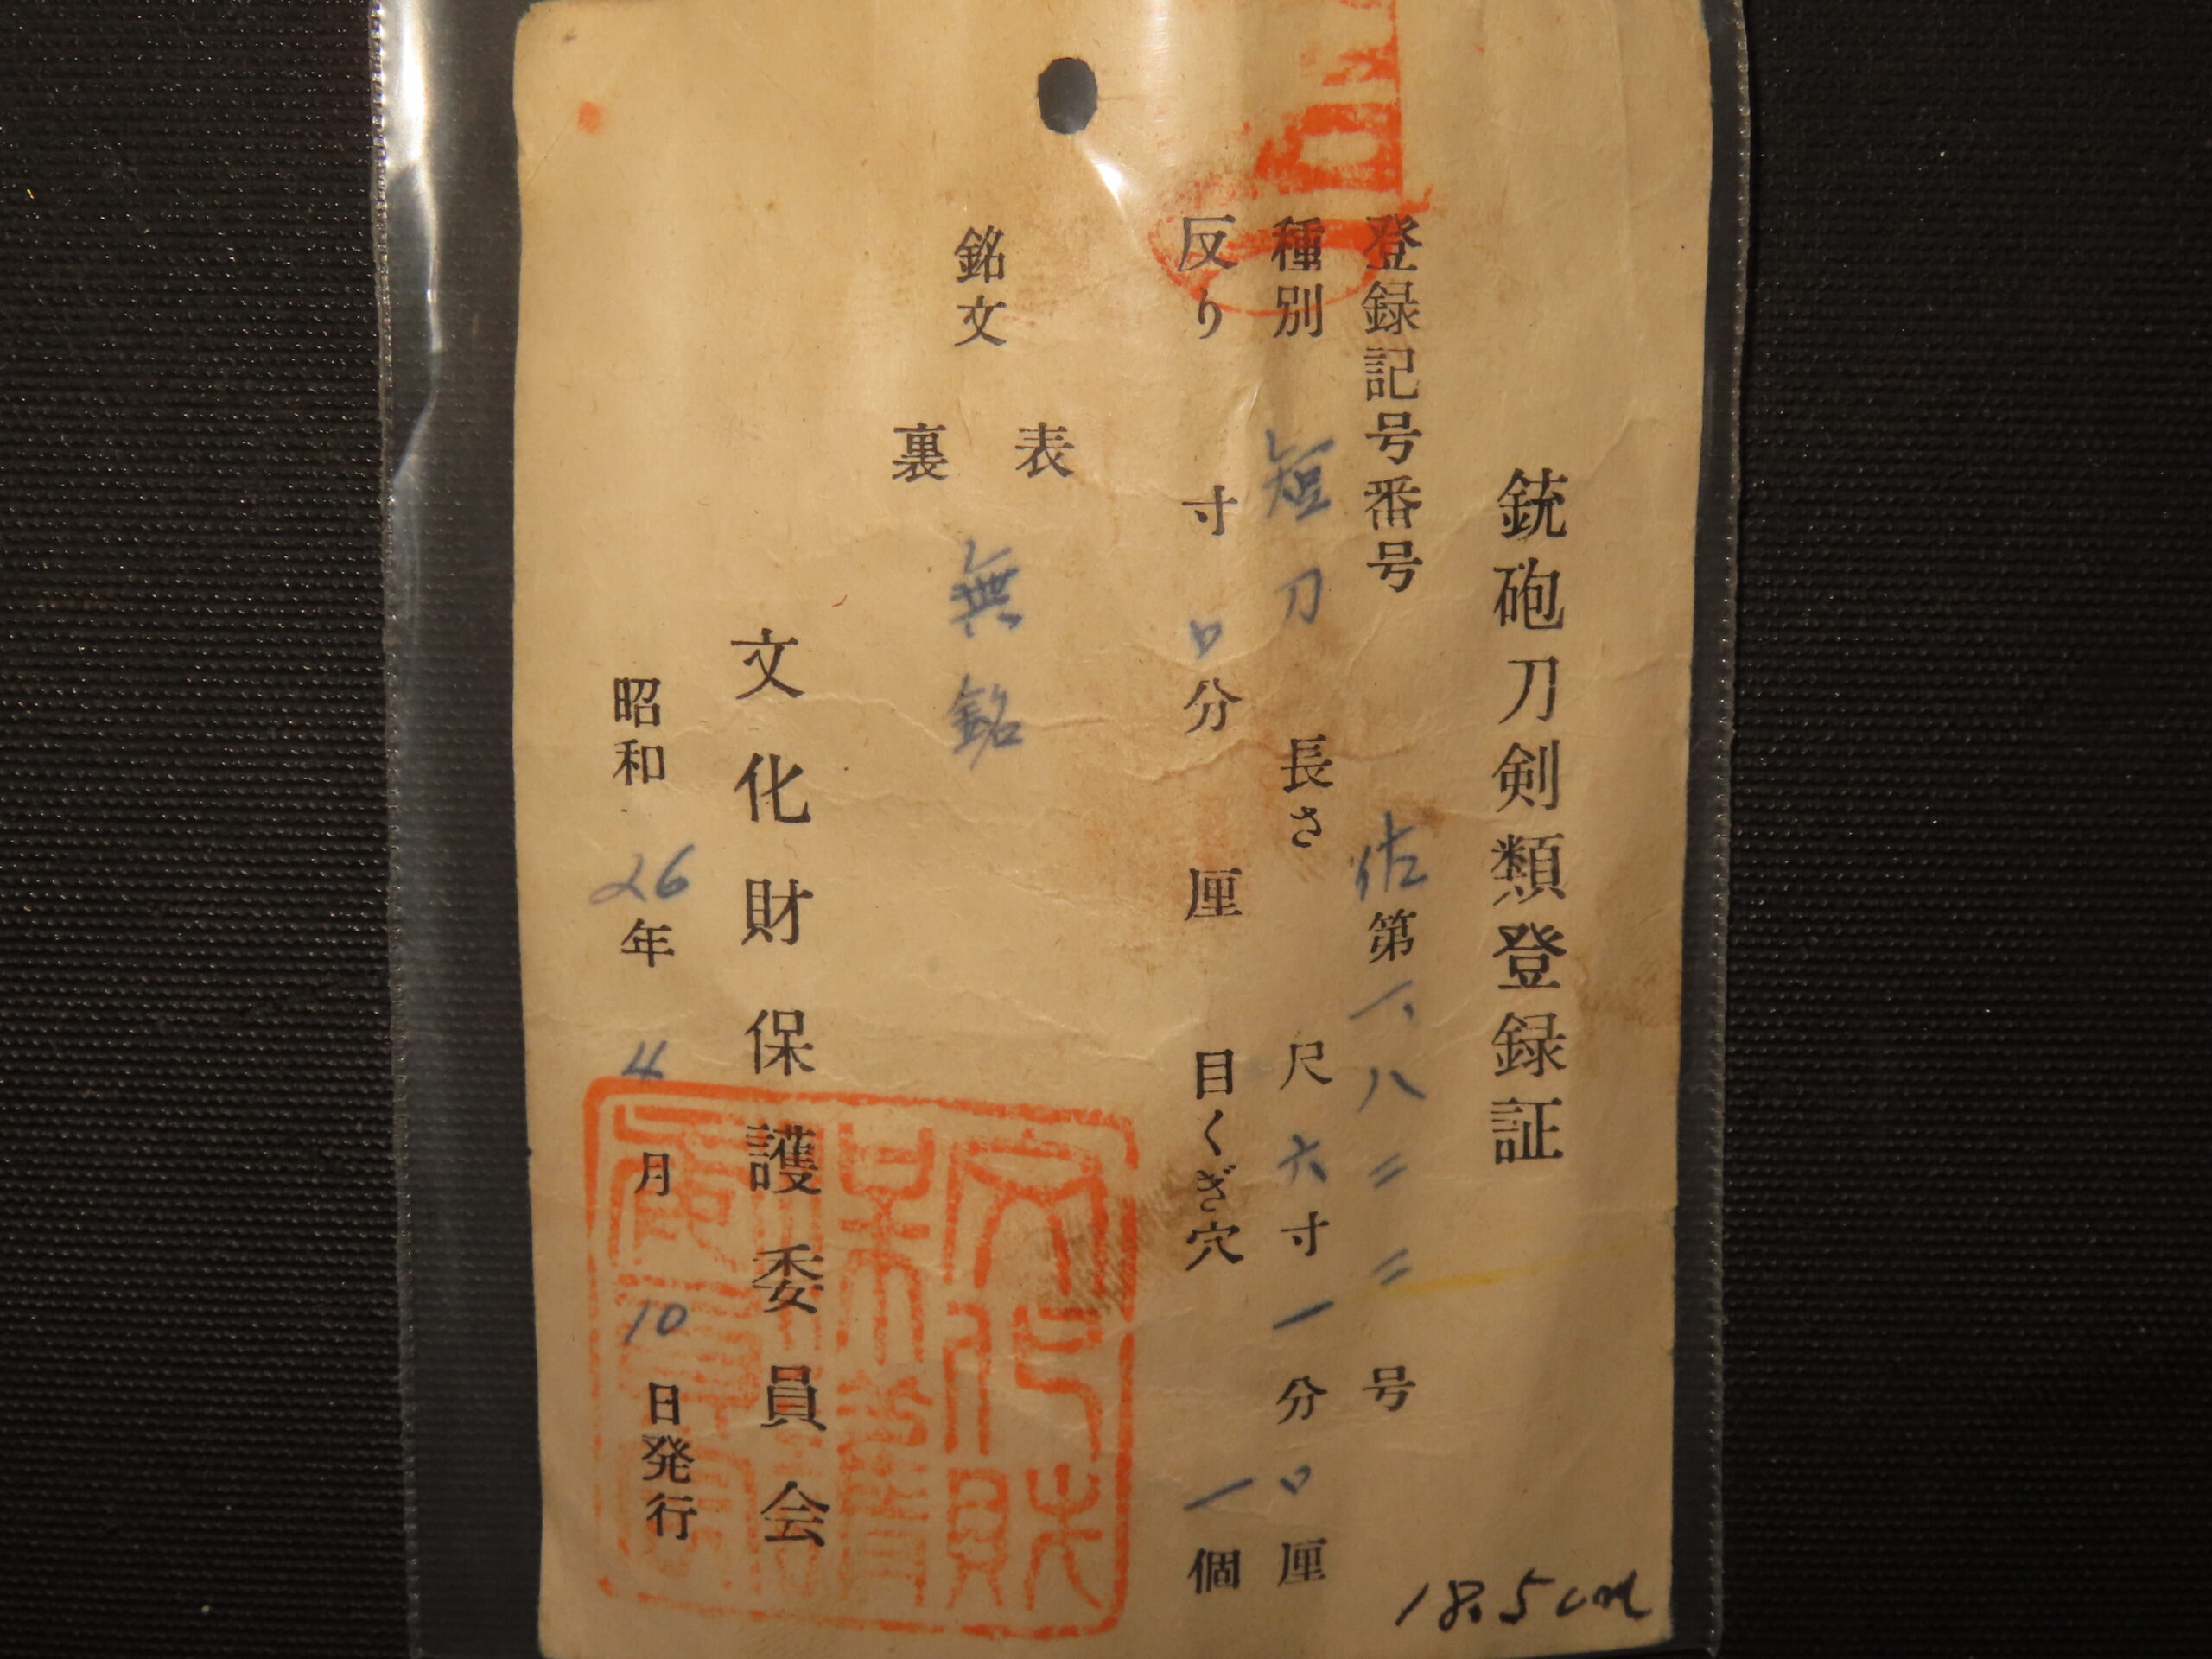 銃砲刀剣類登録証
登録記号番号 佐第一、八二二号
種別 短刀 長さ 尺六寸一分〇厘
反り 寸〇分 厘 目くぎ穴 一個
銘文
表
無銘
裏
文化財保護委員会
昭和26年4月10日発行
18.5cm